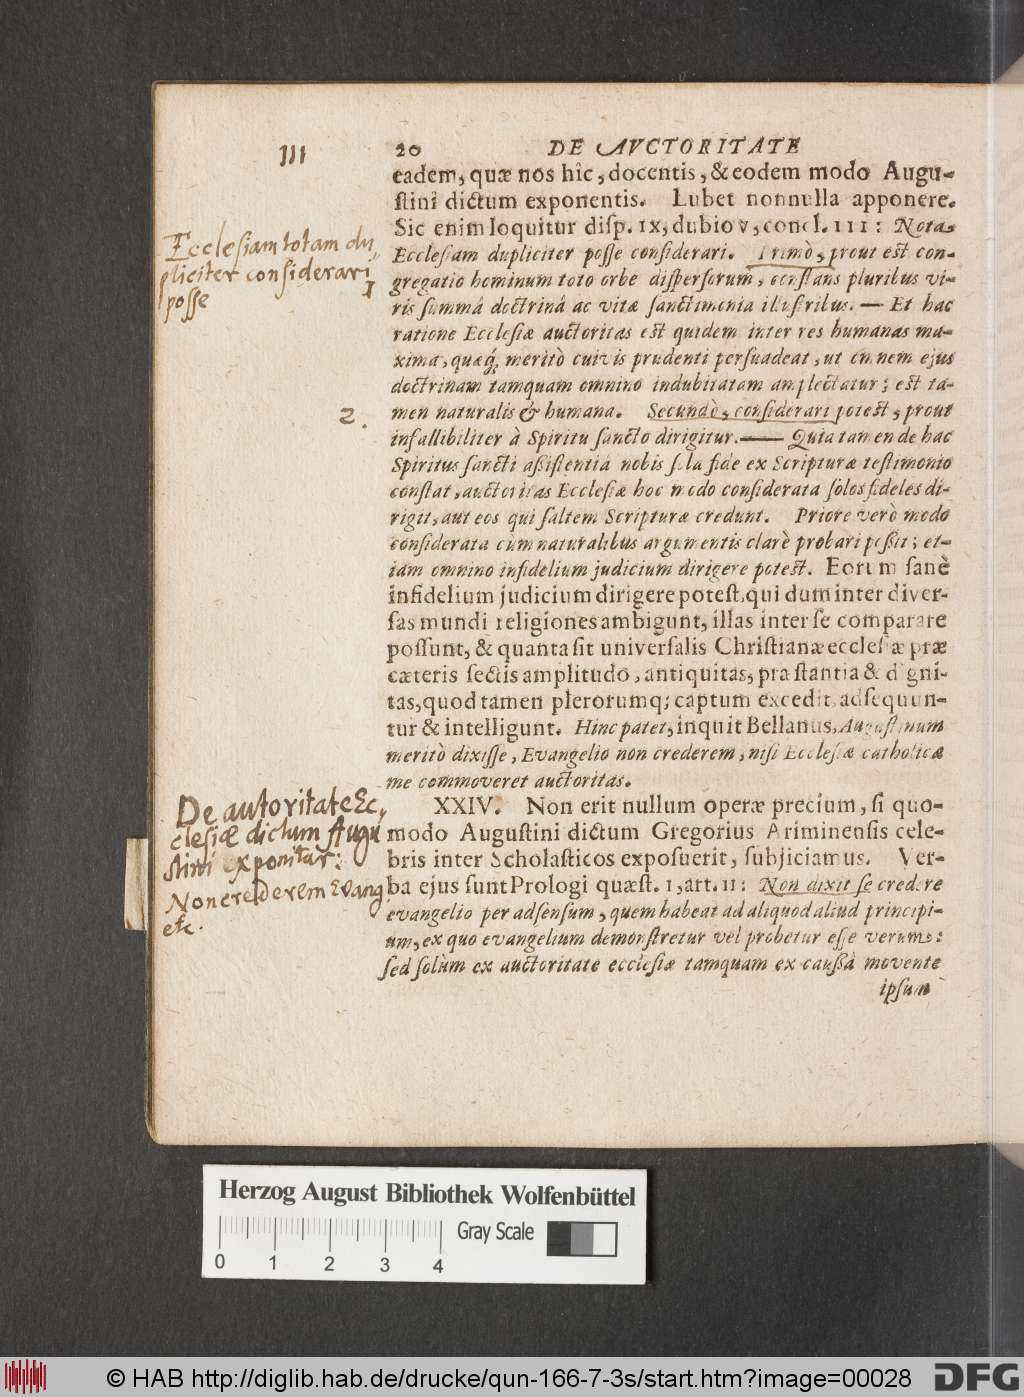 III
20 DE AVCTORITATE
eadem, quæ nos hîc, docentis, & eodem modo Augu-
ſtini dictum exponentis. Lubet nonnulla apponere.
Sic enim loquitur diſp. IX, dubio V, concl. III: Nota,
Eccleſiam dupliciter poſſe conſiderari. Primò, prout eſt con-
gregatio hominum toto orbe diſperſorum, conſtans pluribus vi-
ris ſummâ doctrinâ ac vitæ ſanctimonia illuſtribus. — Et hac
ratione Eccleſiæ auctoritas eſt quidem inter res humanas ma-
xima, quæq́; meritò cuivis prudenti perſuadeat, ut omnem ejus
doctrinam tamquam omnino indubitatam amplectatur; eſt ta-
men naturalis & humana. Secundò, conſiderari poteſt, prout
infallibiliter à Spiritu ſancto dirigitur. — Quia tamen de hac
Spiritus ſancti aſſiſtentia nobis ſola fide ex Scripturæ teſtimonio
conſtat, auctoritas Eccleſiæ hoc modo conſiderata ſolos fideles di-
rigit, aut eos qui ſaltem Scripturæ credunt. Priore verò modo
conſiderata cùm naturalibus argumentis clarè probari poſſit; et-
iam omnino infidelium judicium dirigere poteſt. Eorum ſanè
infidelium judicium dirigere poteſt, qui dum inter diver-
ſas mundi religiones ambigunt, illas inter ſe comparare
poſſunt, & quanta ſit univerſalis Chriſtianæ eccleſiæ præ
cæteris ſectis amplitudo, antiquitas, præſtantia & digni-
tas, quod tamen plerorumq; captum excedit, adſequun-
tur & intelligunt. Hinc patet, inquit Bellanus, Auguſtinum
meritò dixiſſe, Evangelio non crederem, niſi Eccleſiæ catholicæ
me commoveret auctoritas.
XXIV. Non erit nullum operæ precium, ſi quo-
modo Auguſtini dictum Gregorius Ariminenſis cele-
bris inter Scholaſticos expoſuerit, ſubjiciamus. Ver-
ba ejus ſunt Prologi quæſt. I, art. II: Non dixit ſe credere
evangelio per adſenſum, quem habeat ad aliquod aliud principi-
um, ex quo evangelium demonſtretur vel probetur eſſe verum:
ſed ſolùm ex auctoritate eccleſiæ tamquam ex cauſſâ movente
ipſum
Eccleſiam totam du,,
pliciter conſiderari
poſſe
I
2.
De autoritate Ec,,
cleſiæ dictum Augu
ſtini exponitur:
Non crederem Evang
etc.
Herzog August Bibliothek Wolfenbüttel
Gray Scale
0 1 2 3 4
© HAB http://diglib.hab.de/drucke/qun-166-7-3s/start.htm?image=00028
DFG